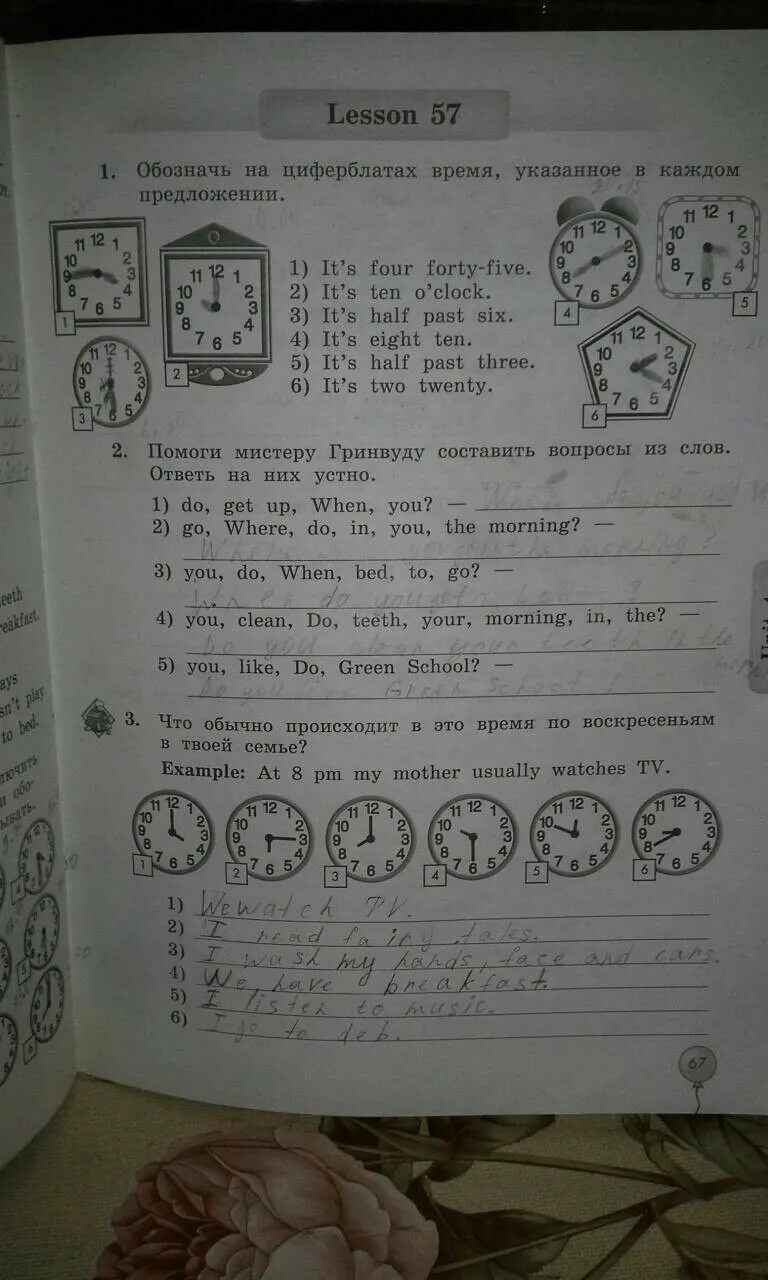 Lesson 57
1. Обозначь на циферблатах время, указанное в каждом
предложении.
1) It's four forty-five.
2) It's ten o'clock.
3) It's half past six.
4) It's eight ten.
5) It's half past three.
6) It's two twenty.
11 12 1
10 2
9 3
8 4
7 6 5
1
2
3
4
5
6
2. Помоги мистеру Гринвуду составить вопросы из слов.
Ответь на них устно.
1) do, get up, When, you? —
do you
2) go, Where, do, in, you, the morning? —
Where you go in the morning ?
3) you, do, When, bed, to, go? —
When do you go to bed ?
4) you, clean, Do, teeth, your, morning, in, the? —
Do you clean your teeth in the
5) you, like, Do, Green School? —
Do you like Green School ?
3. Что обычно происходит в это время по воскресеньям
в твоей семье?
Example: At 8 pm my mother usually watches TV.
1
2
3
4
5
6
1) We watch TV.
2) I read fairy tales.
3) I wash my hands, face and ears.
4) We have breakfast.
5) I listen to music.
6) I go to deb.
67
eeth
reakfast.
ays
sn't play
to bed.